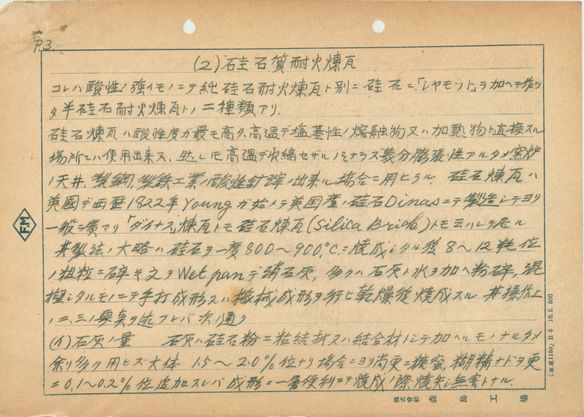 P.3.
(2) 硅石質耐火煉瓦
コレハ酸性ノ強イモノニテ純硅石耐火煉瓦ト別ニ硅石ニ「シヤモット」ヲ加ヘテ作ツ
タ半硅石耐火煉瓦トノ二種類アリ.
硅石煉瓦ハ酸性度ガ最モ高ク、高温デ塩基性ノ熔融物又ハ加熱物ト直接スル
場所ニハ使用出来ヌ. 然レ氏高温デ収縮セザルノミナラズ幾分膨張性アルタメ窯炉
ノ天井、製鋼、製鉄工業ノ酸性 出来ル場合ニ用ヒラル. 硅石煉瓦ハ
英國デ西歴1822年Youngガ始メテ英國産ノ硅石Dinasニテ製造シテヨリ
一般ニ廣マリ「ダイナス」煉瓦トモ硅石煉瓦(Silica Brick)トモヨバレテ居ル
其製法ノ大略ハ硅石ヲ一度800〜900℃ニ焼成シタル後8〜12粍位
ノ粗粒ニ砕キ之ヲWet panデ消石灰、多クハ石灰ノ水ヲ加ヘ粉砕、混
捏シタルモノニテ手打成形又ハ機械成形ヲ行ヒ乾燥後焼成スル 其操作上
ノ二、三ノ要点ヲ述フレバ次ノ通リ
(イ)石灰ノ量 石灰ハ硅石粉ニ粘結材又ハ結合材トシテ加ヘルモノナルタメ
余リ多ク用ヒズ大体 1.5〜2.0%位ナリ場合ニヨリ尚更ニ 糊精ナドヲ更
ニ0.1〜0.2%位追加スレバ成形ニ一番便利ニテ焼成ノ際焼失シ無害トナル.
FM
株式會社 森島工場